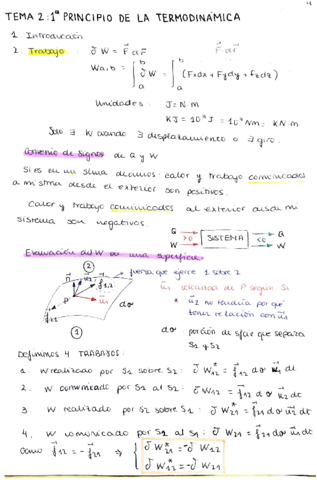 4
TEMA 2: 1er PRINCIPIO DE LA TERMODINÁMICA
1. Introducción
2. Trabajo: δW = F dr F dr
Wa,b = ∫ab δW = ∫ab (Fxdx + Fydy + fzdz)
Unidades: J = N·m
KJ = 10³ J = 10³ Nm; KN·m
Solo ∃ W cuando ∃ desplazamiento o ∃ giro.
Convenio de signos de Q y W
Si es en un stma decimos: calor y trabajo comunicados
a mi stma desde el exterior son positivos.
Calor y trabajo comunicados al exterior desde mi
sistema son negativos.
Q >0 SISTEMA Q
W <0 W
Evaluación del W en una superficie
② fuerza que ejerce 1 sobre 2
n u2 f12
P u1 dσ
f21
①
u1 velocidad de P según S1
* u2 no tendría por qué
tener relación con u1
dσ porción de sfcie que separa
S1 y S2
Definimos 4 TRABAJOS:
1. W realizado por S1 sobre S2: δW*12 = f12 dσ u1 dt
2. W comunicado por S1 al S2: δW12 = f12 dσ u2 dt
3. W realizado por S2 sobre S1: δW*21 = f21 dσ u2 dt
4. W comunicado por S2 al S1: δW21 = f21 dσ u1 dt
Como f12 = -f21 ⇒ { δW*21 = -δW12
δW*12 = -δW21